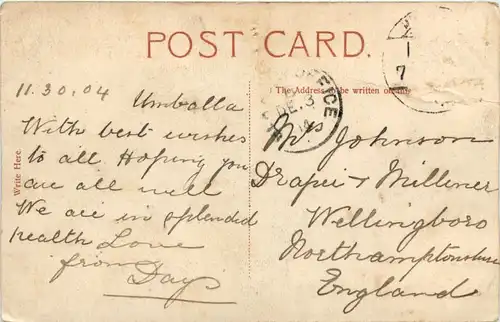 POST CARD.
11.30.04
Umballa
With best wishes
to all. Hoping you
are all well
We are in splended
health Love
from
Days
Write Here.
The Address to be written on
OFFICE
DE. 3
1
7
Mrs Johnson
Draper & Milliner
Wellingboro
Northamptonshire
England